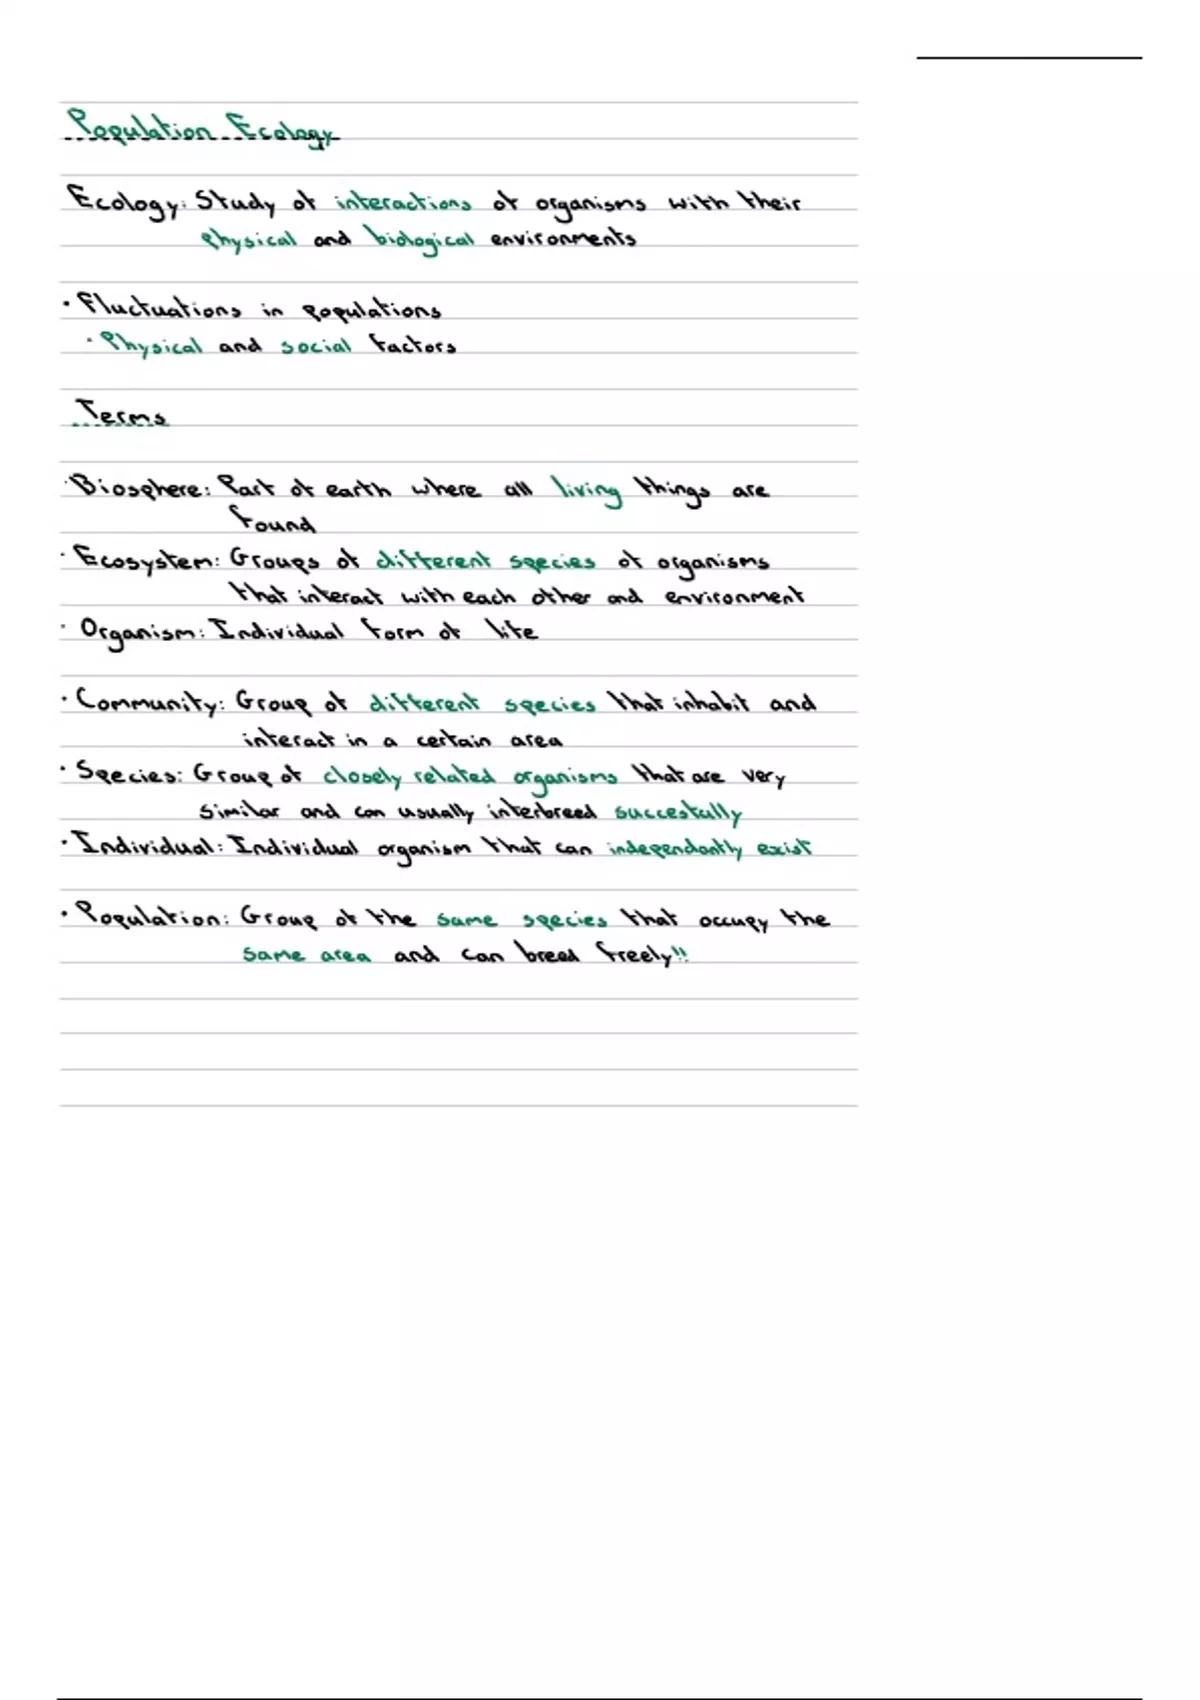 Population Ecology
Ecology: Study of interactions of organisms with their
physical and biological environments
• Fluctuations in populations
• Physical and social factors
Terms
• Biosphere: Part of earth where all living things are
found
• Ecosystem: Groups of different species of organisms
that interact with each other and environment
• Organism: Individual form of life
• Community: Group of different species that inhabit and
interact in a certain area
• Species: Group of closely related organisms that are very
similar and can usually interbreed succesfully
• Individual: Individual organism that can independantly exist
• Population: Group of the same species that occupy the
same area and can breed freely!!